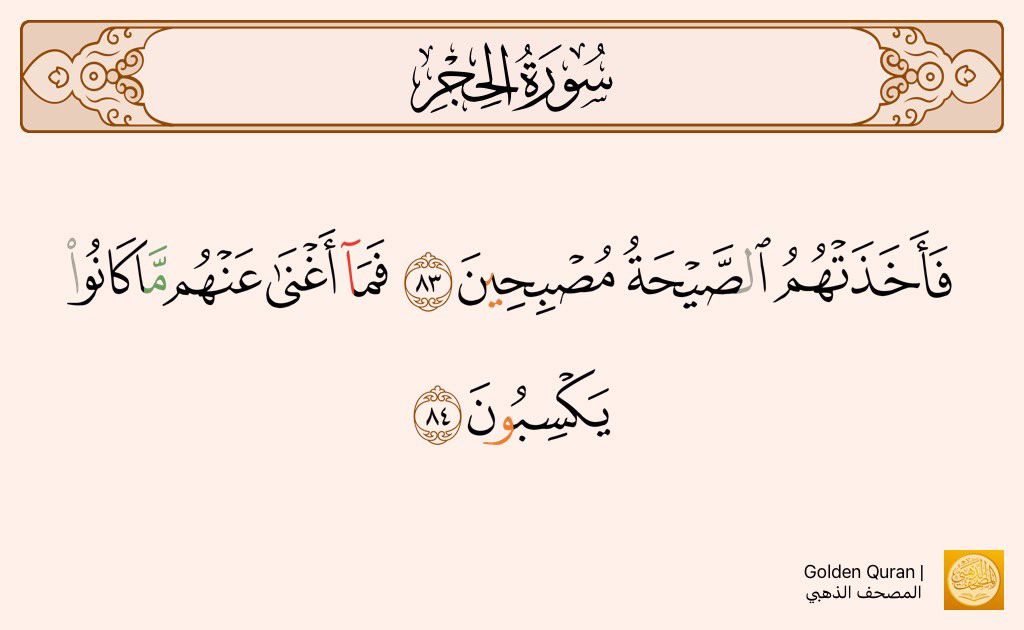 سُورَةُ الحِجْرِ
فَأَخَذَتْهُمُ ٱلصَّيْحَةُ مُصْبِحِينَ ٨٣ فَمَآ أَغْنَىٰ عَنْهُم مَّا كَانُوا۟
يَكْسِبُونَ ٨٤
Golden Quran |
المصحف الذهبي